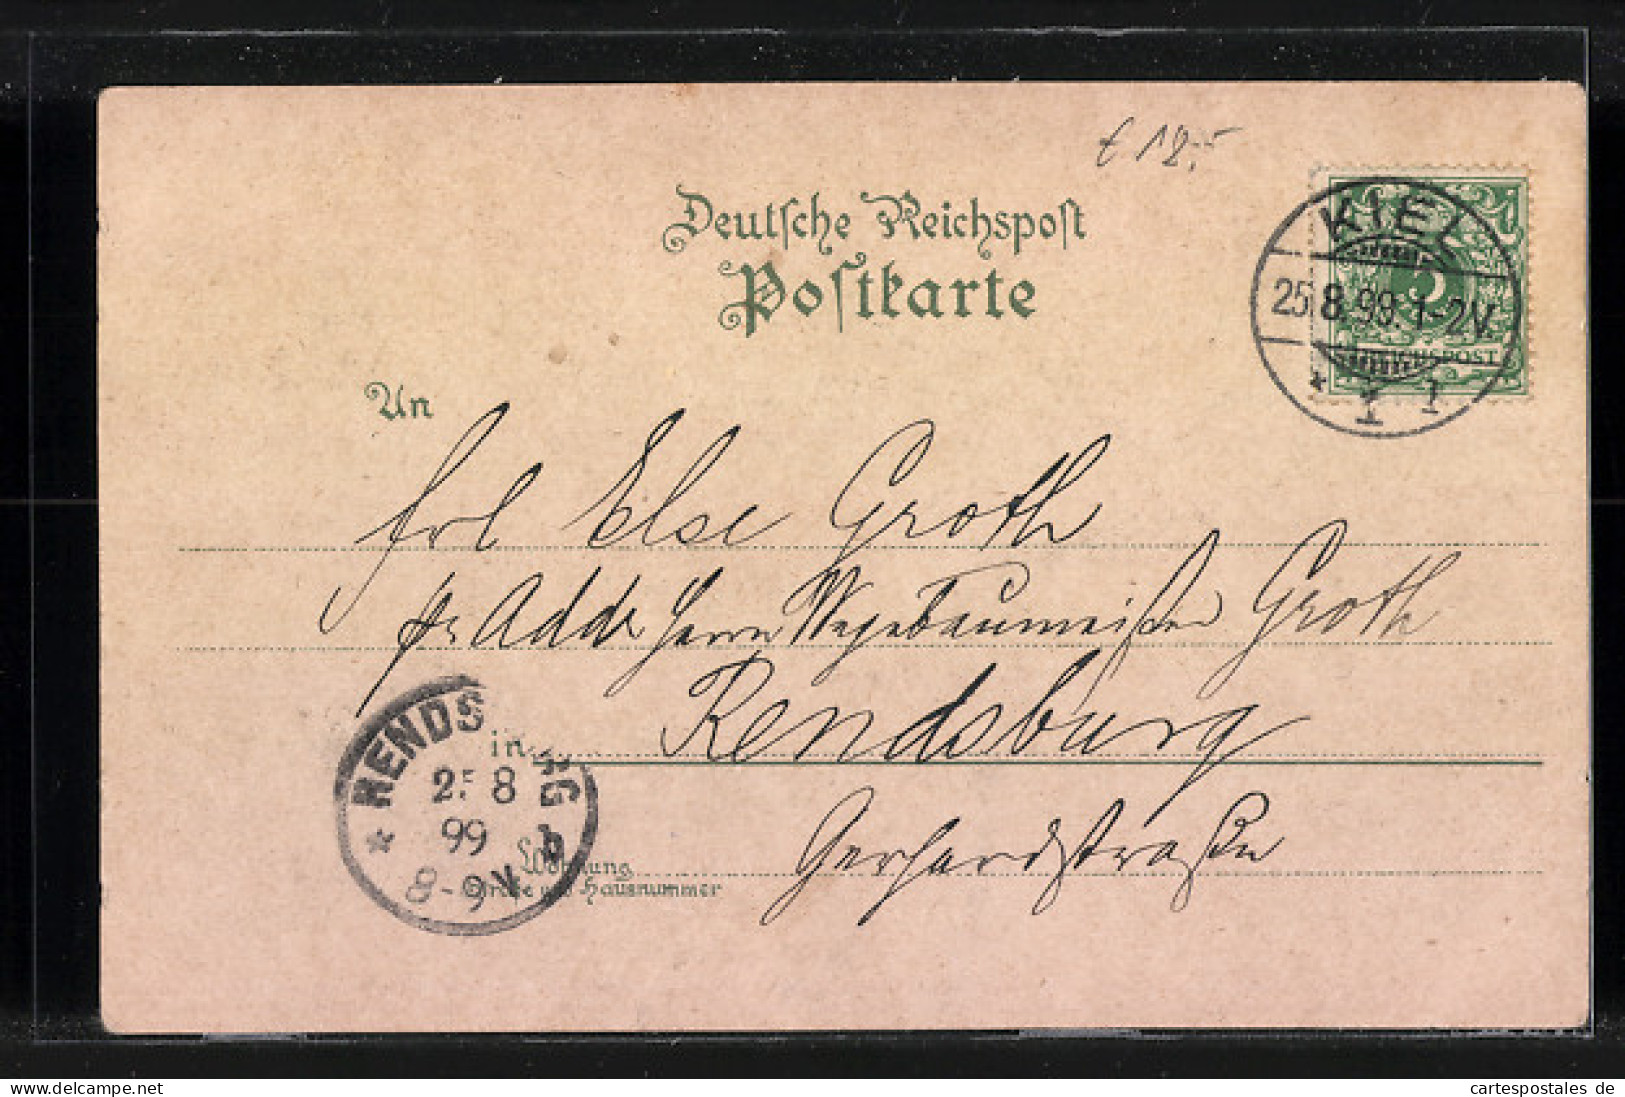 € 12.-
Deutsche Reichspost
Postkarte
KIEL
25.8.99.1-2V.
* 1 1
5
REICHSPOST
An
Frl Else Groth
pr Addr Herrn Wegebaumeister Groth
in Rendsburg
RENDSBURG
25 8
99
8-9V
* b
Gerhardstraße
Wohnung
Straße und Hausnummer
www.cartespostales.de
cartespostales de